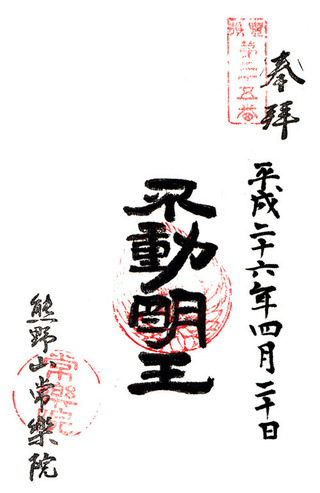 奉拝
第二十五番
平成二十六年四月二十日
不動明王
熊野山常樂院
常樂院